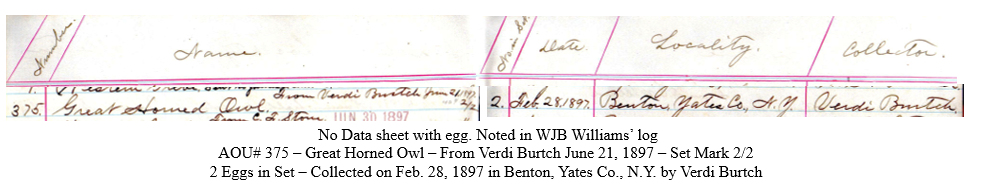 Number. Name. No in Set. Date. Locality. Collector.
From Verdi Burtch June 21, 1897
375. Great Horned Owl 2/2 2. Feb. 28, 1897. Benton, Yates Co., N.Y. Verdi Burtch
From E. J. Stow JUN 30 1897
No Data sheet with egg. Noted in WJB Williams’ log
AOU# 375 – Great Horned Owl – From Verdi Burtch June 21, 1897 – Set Mark 2/2
2 Eggs in Set – Collected on Feb. 28, 1897 in Benton, Yates Co., N.Y. by Verdi Burtch